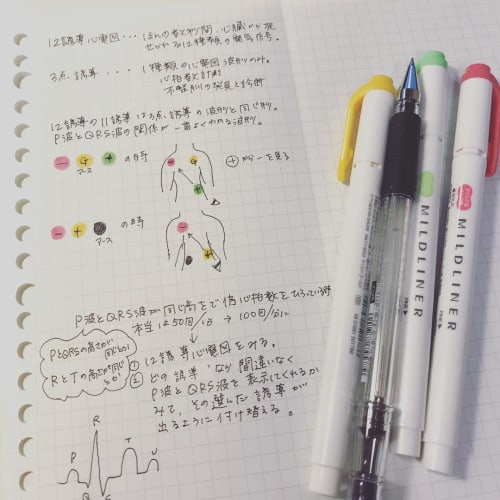 12誘導心電図・・・ほんの数秒間、心臓から発
せられる12種類の電気信号。
3点誘導・・・・1種類の心電図波形のみ。
心拍数計測
不整脈の発見と診断
12誘導のII誘導は3点誘導の波形と同じ形。
P波とQRS波の関係が一番よくわかる波形。
− G + の時
アース
− G +
+から−を見る
− + ● の時
アース
− +
P波とQRS波が同じ高さで偽心拍数をひろっている時
本当は50回/分 → 100回/分に
PとQRSの高さが同じとか
RとTの高さが同じとか
① 12誘導心電図をみる。
② どの誘導なら間違いなく
P波とQRS波を表示してくれるか
みて、その選んだ誘導が
出るように付け替える。
P Q R S T U
MILDLINER
MILDLINER
MILDLINER